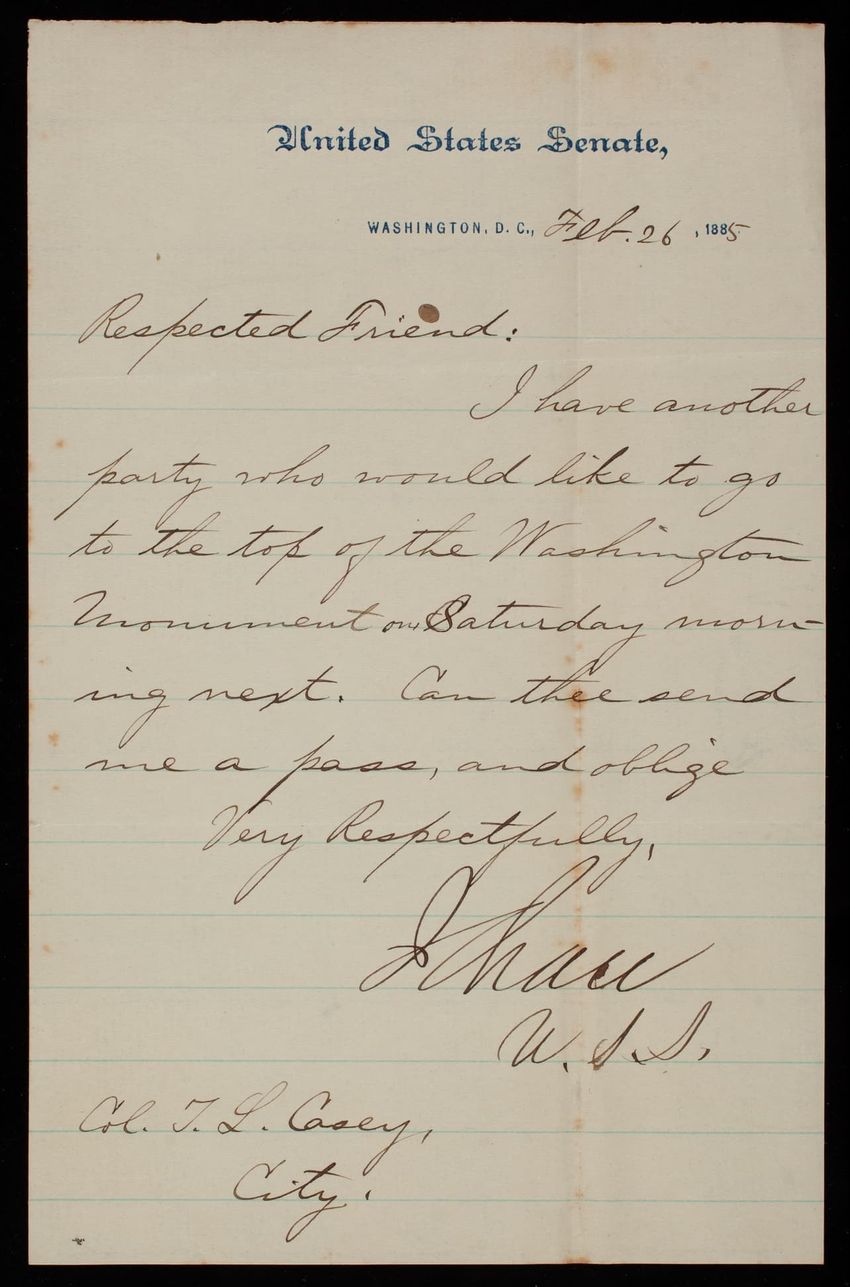 United States Senate,
WASHINGTON, D. C., Feb. 26, 1885
Respected Friend:
I have another
party who would like to go
to the top of the Washington
Monument on Saturday morn-
ing next. Can thee send
me a pass, and oblige
Very Respectfully,
U. S. S.
Col. T. L. Casey,
City.